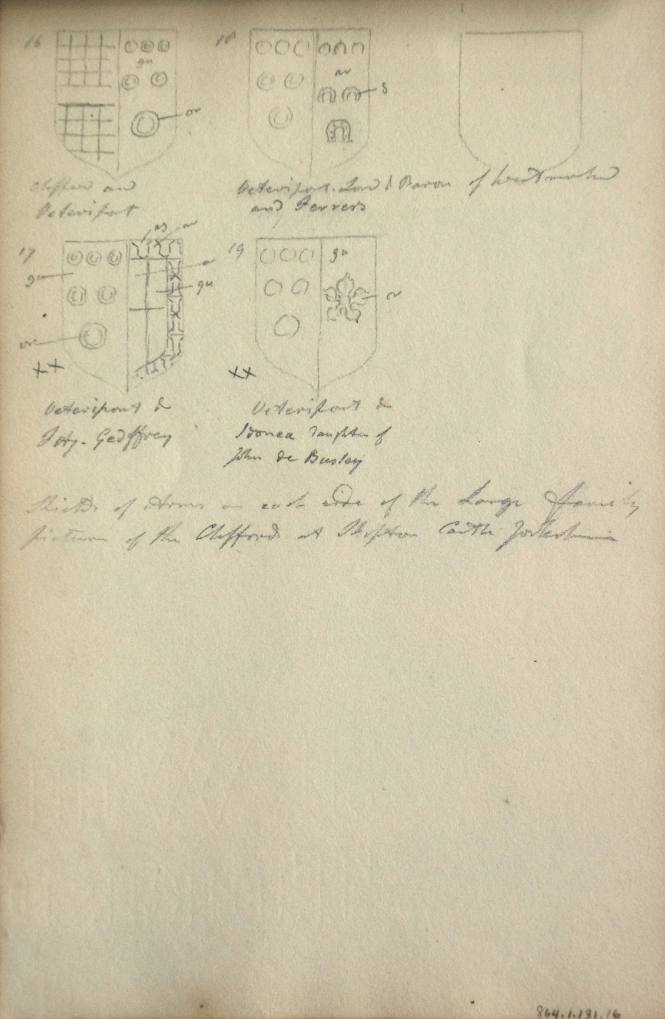 16
gu
or
Clifford and
Veteripont
18
ar
S
Veteripont Lord & Baron of Westmorland
and Ferrers
17
gu
or
az
ar
gu
Veteripont &
Fitz-Geoffrey
19
gu
or
Veteripont &
Idonea daughter of
John de Busley
Shields of Arms on each side of the Large family
picture of the Cliffords at Skipton Castle Yorkshire
864.1.131.16